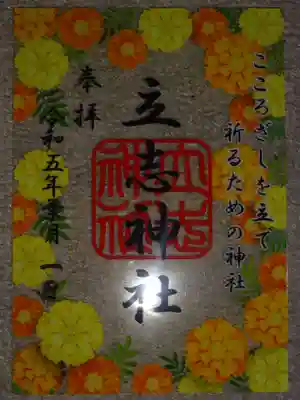 こころざしを立て
祈るための神社
立志神社
奉拝
令和五年 月一日